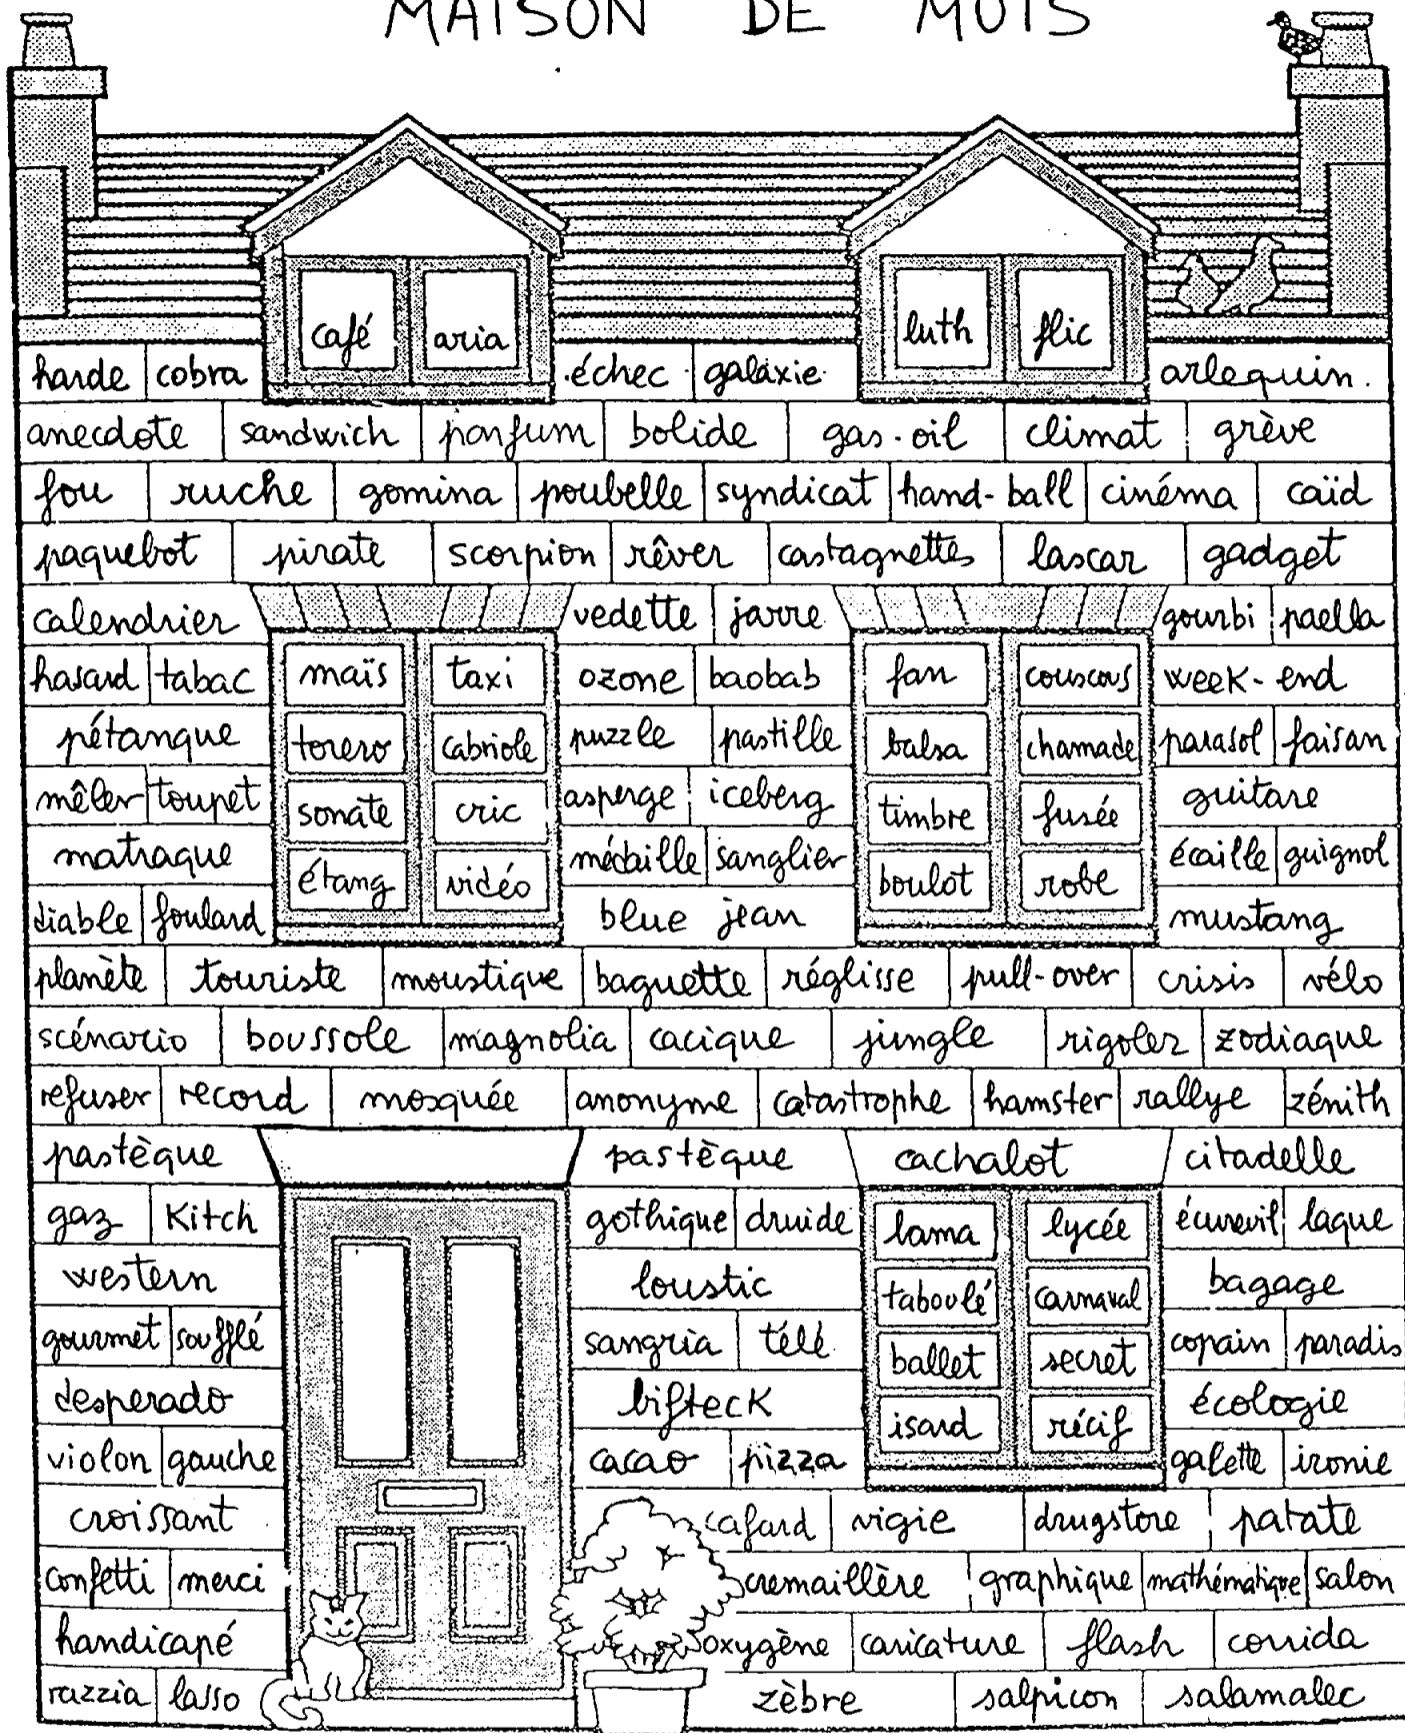 MAISON DE MOTS
café aria luth flic
harde cobra échec galaxie arlequin.
anecdote sandwich parfum bolide gas-oil climat grève
fou ruche gomina poubelle syndicat hand-ball cinéma caïd
paquebot pirate scorpion rêver castagnettes lascar gadget
calendrier vedette jarre gourbi paella
hasard tabac maïs taxi ozone baobab fan couscous week-end
pétanque torero cabriole puzzle pastille balsa chamade parasol faisan
mêler toupet sonate cric asperge iceberg timbre fusée guitare
matraque étang vidéo médaille sanglier boulot robe écaille guignol
diable foulard blue jean mustang
planète touriste moustique baguette réglisse pull-over crisis vélo
scénario boussole magnolia cacique jungle rigoler zodiaque
refuser record mosquée anonyme catastrophe hamster rallye zénith
pastèque pastèque cachalot citadelle
gaz Kitch gothique druide lama lycée écureuil laque
western loustic taboulé carnaval bagage
gourmet soufflé sangria télé ballet secret copain paradis
desperado bifteck isard récif écologie
violon gauche cacao pizza galette ironie
croissant cafard vigie drugstore patate
confetti merci cremaillère graphique mathématique salon
handicapé oxygène caricature flash corrida
razzia lasso zèbre salpicon salamalec